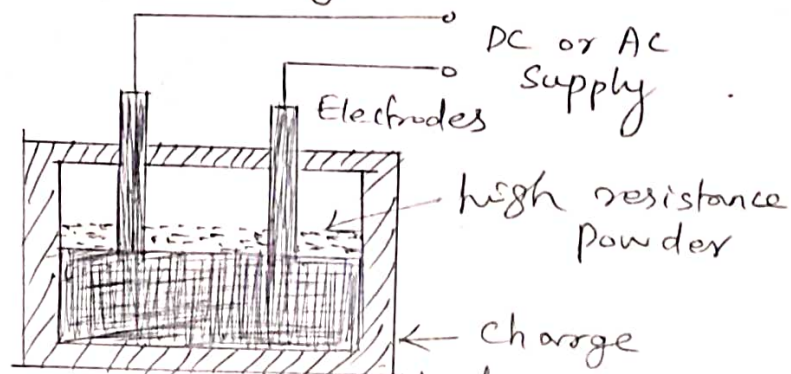 DC or AC
Supply
Electrodes
high resistance
Powder
Charge